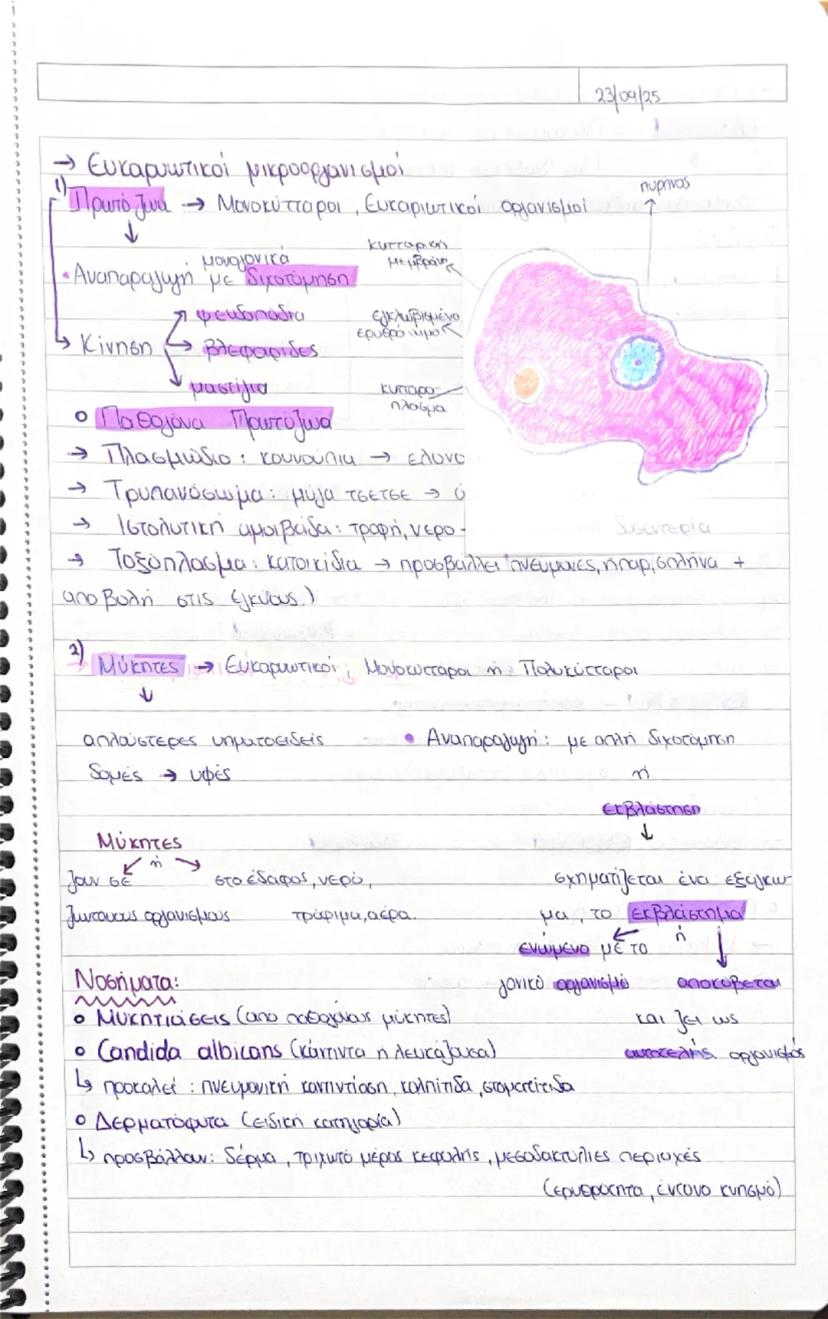 23/09/25
→ Ευκαρυωτικοί μικροοργανισμοί
πυρήνας
1) Πρωτόζωα → Μονοκύτταροι, Ευκαριωτικοί οργανισμοί
κυτταρική
μεμβράνη
μονογονικά
• Αναπαραγωγή με διχοτόμηση
εγκλωβισμένο
ερυθρό
→ Κίνηση → ψευδοπόδια
→ βλεφαρίδες
→ μαστίγια
κυτταρο-
πλασμα
ο Παθογόνα Πρωτόζωα
→ Πλασμώδιο: κουνούπια → ελονο
→ Τρυπανόσωμα: μύγα τσετσε →
→ Ιστολυτική αμοιβάδα: τροφή, νερο - δυσεντερία
→ Τοξόπλασμα: κατοικίδια → προσβάλλει πνεύμονες, ήπαρ, σπλήνα +
αποβολή στις εγκύους.)
2) Μύκητες → Ευκαρυωτικοί, Μονοκύτταροι ή Πολυκύτταροι
↓
απλούστερες νηματοειδείς
δομές → υφές
• Αναπαραγωγή: με απλή διχοτόμηση
ή
εκβλάστηση
↓
Μύκητες
ή
ζουν σε
ζωντανους οργανισμους
στο έδαφος, νερό,
τρόφιμα, αέρα.
σχηματίζεται ένα εξόγκω-
μα, το εκβλάστημα
ή
ενωμένο με το
γονικό οργανισμό
αποκόβεται
και ζει ως
αυτοτελής οργανισμός
Νοσήματα:
ο Μυκητιάσεις (από παθογόνους μύκητες)
ο Candida albicans (κάντιντα η λευκάζουσα)
↳ προκαλεί: πνευμονική καντιντίαση, κολπίτιδα, στοματίτιδα
ο Δερματόφυτα (ειδική κατηγορία)
↳ προσβάλλουν: δέρμα, τριχωτό μέρος κεφαλής, μεσοδακτύλιες περιοχές
(ερυθρότητα, έντονο κνησμό)